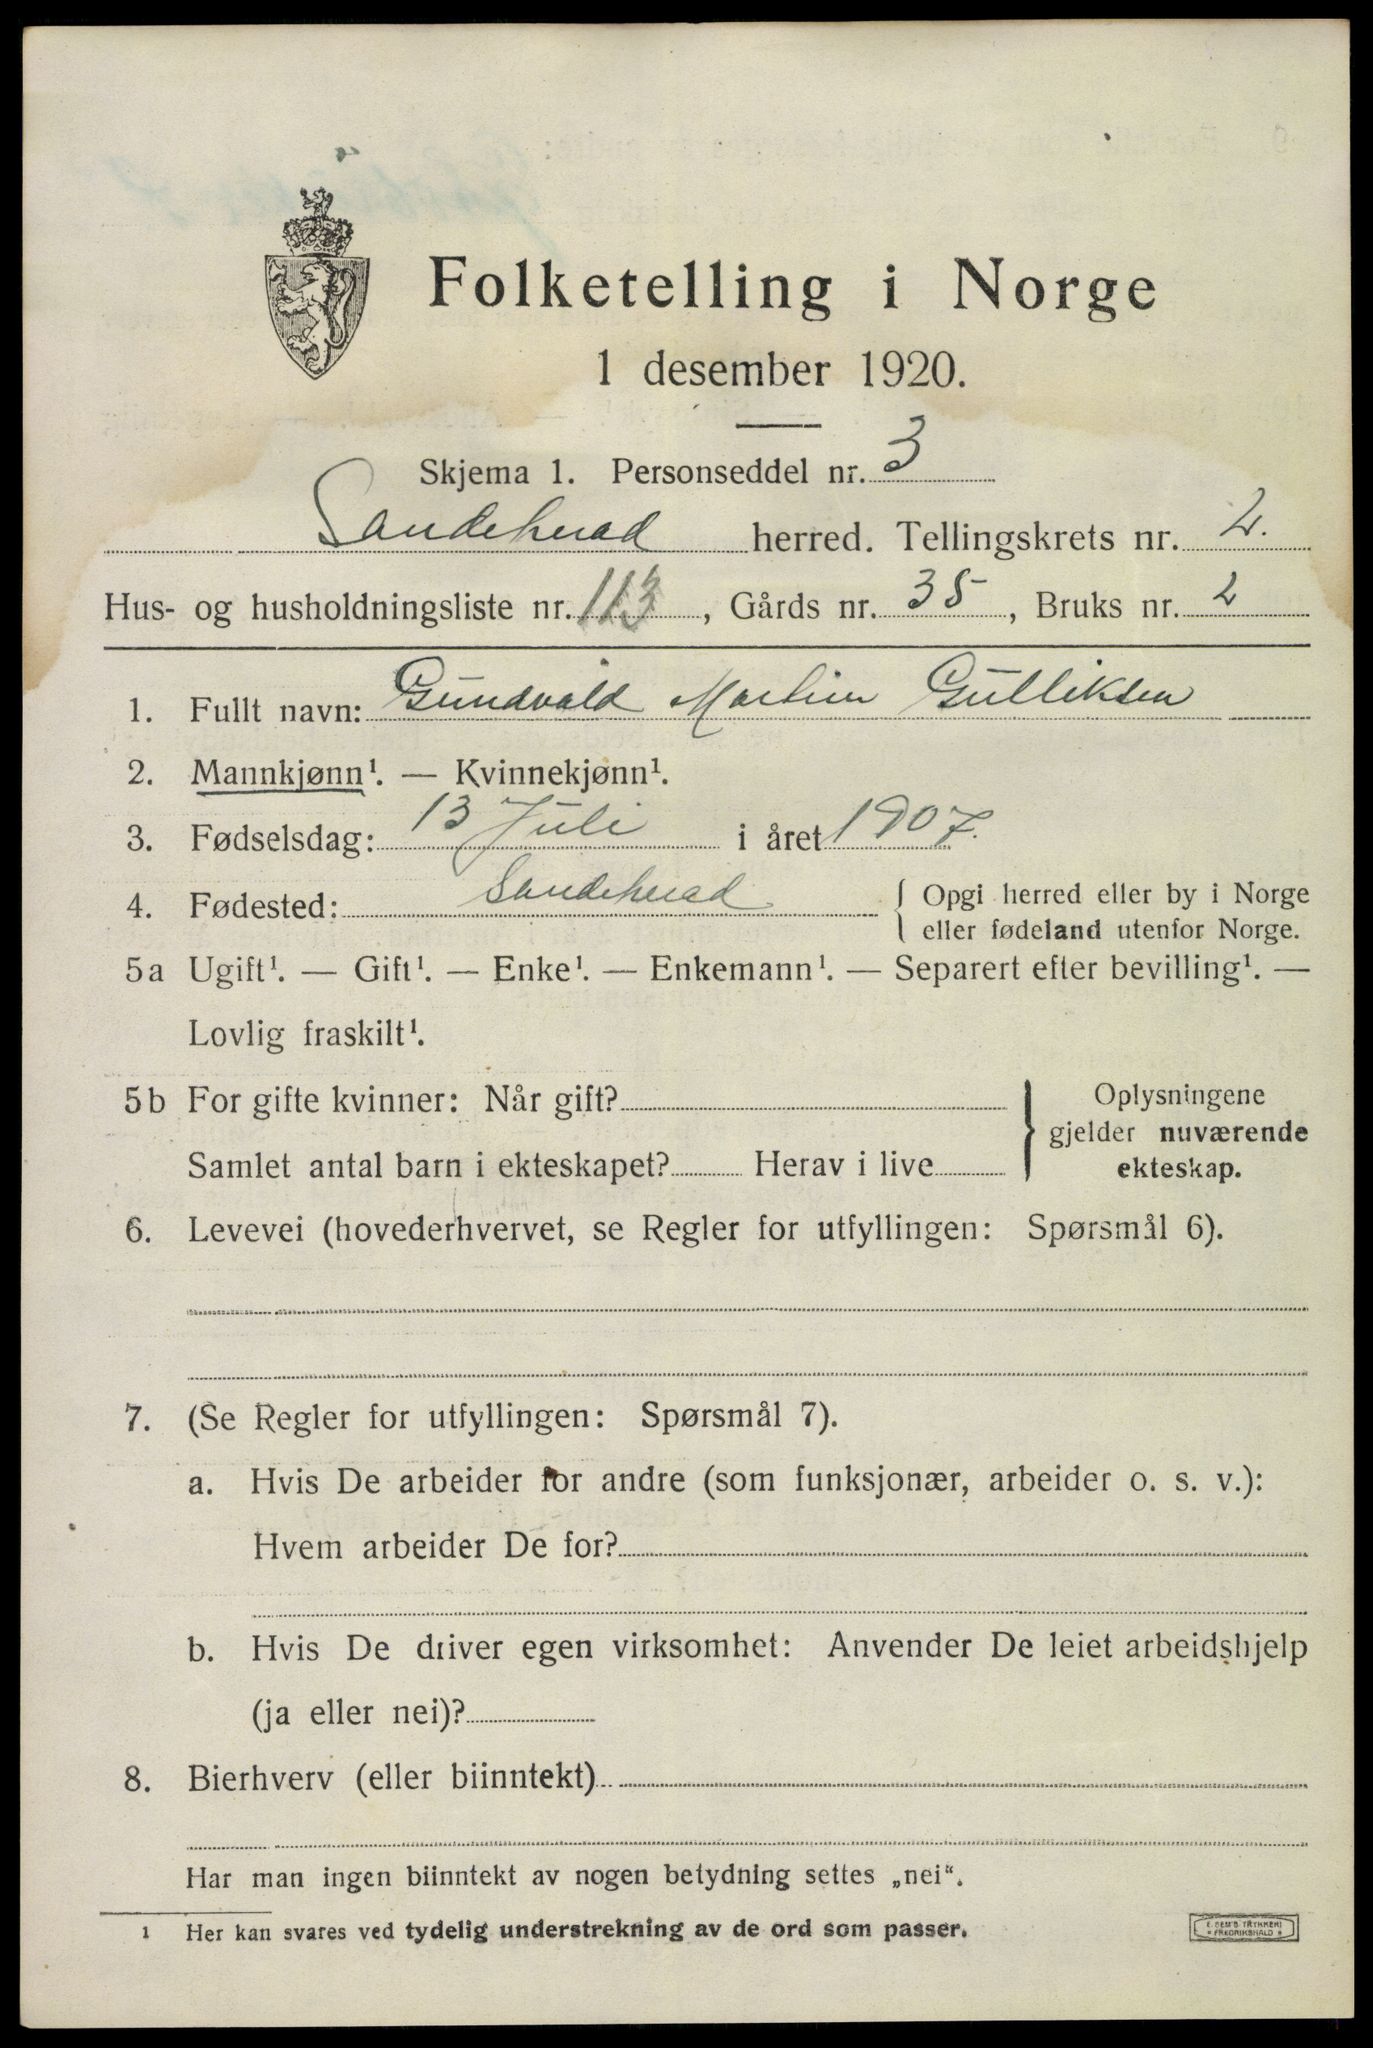 Folketelling i Norge
1 desember 1920.
Skjema 1. Personseddel nr. 3
Sandeherad herred. Tellingskrets nr. 2.
Hus- og husholdningsliste nr. 113, Gårds nr. 35, Bruks nr. 2
1. Fullt navn: Gundvald Martin Gulliksen
2. Mannkjønn¹. — Kvinnekjønn¹.
3. Fødselsdag: 13 Juli i året 1907.
4. Fødested: Sandeherad { Opgi herred eller by i Norge
eller fødeland utenfor Norge.
5a Ugift¹. — Gift¹. — Enke¹. — Enkemann¹. — Separert efter bevilling¹. —
Lovlig fraskilt¹.
5b For gifte kvinner: Når gift?
Samlet antal barn i ekteskapet? Herav i live
} Oplysningene
gjelder nuværende
ekteskap.
6. Levevei (hovederhvervet, se Regler for utfyllingen: Spørsmål 6).
7. (Se Regler for utfyllingen: Spørsmål 7).
a. Hvis De arbeider for andre (som funksjonær, arbeider o. s. v.):
Hvem arbeider De for?
b. Hvis De driver egen virksomhet: Anvender De leiet arbeidshjelp
(ja eller nei)?
8. Bierhverv (eller biinntekt)
Har man ingen biinntekt av nogen betydning settes „nei“.
1 Her kan svares ved tydelig understrekning av de ord som passer.
E. SEM'S TRYKKERI
* FREDRIKSHALD *